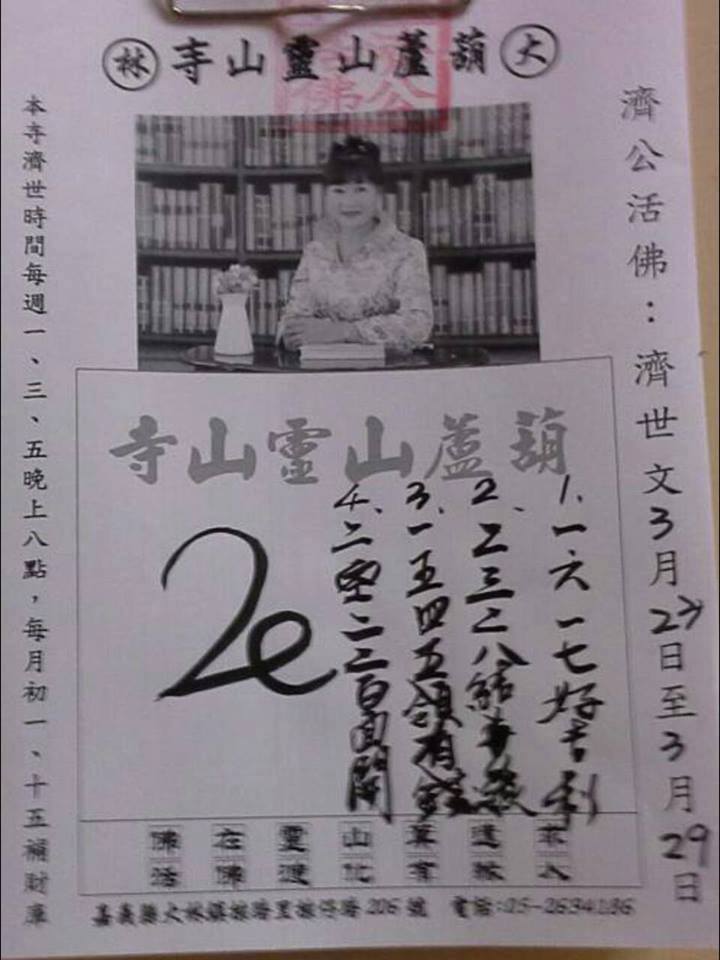 大葫蘆山靈山寺林
濟公活佛：濟世文3月23日至3月29日
葫蘆山靈山寺
1、一六一七好吉利
2、二三二八結
3、一五四五領有錢
4、二空二二百面開
2e
山靈在佛
有化渡佛活
本寺濟世時間每週一、三、五晚上八點，每月初一、十五補財庫
嘉義縣大林鎮 206號 電話:05-